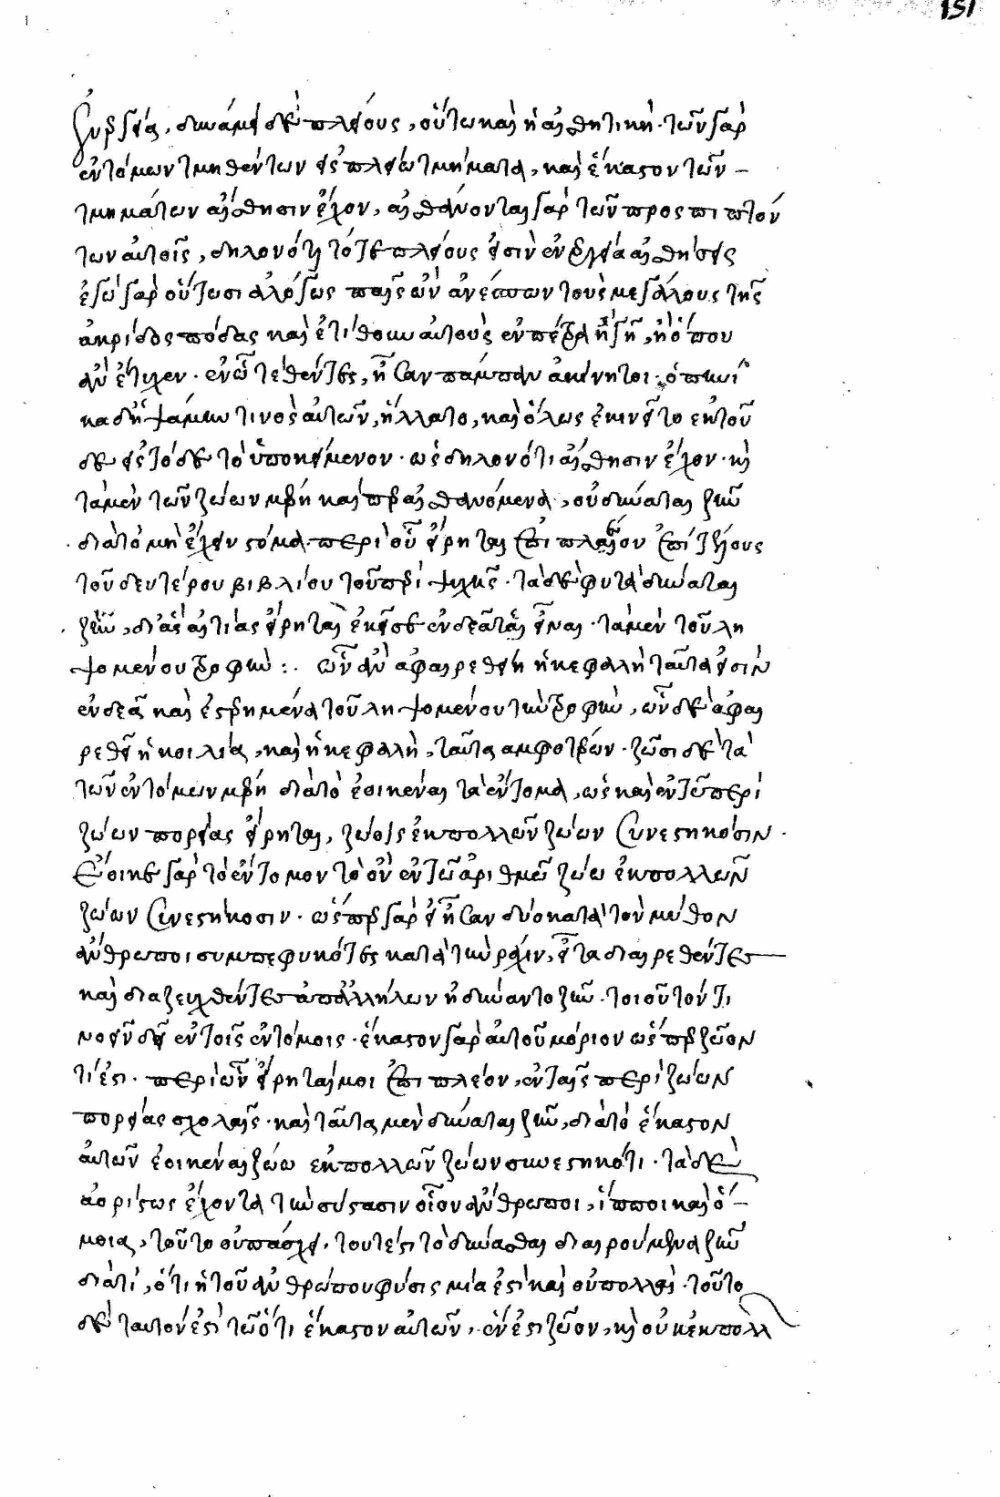 151
ἐνεργείᾳ, δυνάμει δὲ πλείους, οὕτω καὶ ἡ αἰσθητική· τῶν γὰρ
ἐντόμων τμηθέντων εἰς πλείω τμήματα, καὶ ἕκαστον τῶν
τμημάτων αἴσθησιν ἔχον, αἰσθάνονται γὰρ τῶν προσπιπτόν
των αὐτοῖς, δηλονότι τότε πλείους εἰσὶν ἐνεργείᾳ αἰσθήσεις
ἐγὼ γὰρ οὑτωσὶ ἀλόγως παῖς ὢν ἀνέσπων τοὺς μεγάλους τῆς
ἀκρίδος πόδας καὶ ἐτίθουν αὐτοὺς ἐν πέτρᾳ ἢ γῇ, ἢ ὅπου
ἂν ἔτυχεν· ἐν ᾧ τεθέντες, ἦσαν πάμπαν ἀκίνητοι· ὁπηνί
κα δὲ ἡψάμην τινὸς αὐτῶν, ἥλλατο, καὶ ὅλως ἐκινεῖτο ἐκ τοῦ
δε εἰς τόδε τὸ ὑποκείμενον· ὡς δηλονότι αἴσθησιν ἔχον· καὶ
τὰ μὲν τῶν ζώων μέρη καίπερ αἰσθανόμενα, οὐ δύναται ζῆν
διὰ τὸ μὴ ἔχειν στόμα· περὶ οὗ εἴρηται ἐπὶ πλεῖον ἐπὶ τέλους
τοῦ δευτέρου βιβλίου τοῦ περὶ ψυχῆς· τὰ δὲ φυτὰ δύναται
ζῆν, δι' ἃς αἰτίας εἴρηται ἐκεῖσε ἐνδεᾶ τε εἶναι· τὰ μὲν τοῦ λη
ψομένου τροφήν :· ὧν ἂν ἀφαιρεθείη ἡ κεφαλὴ ταῦτα εἰσὶν
ἐνδεᾶ καὶ ἐστερημένα τοῦ ληψομένου τὴν τροφήν, ὧν δὲ ἀφαι
ρεθῇ ἡ κοιλία, καὶ ἡ κεφαλή, ταῦτα ἀμφοτέρων· ζῶσι δὲ τὰ
τῶν ἐντόμων μέρη διὰ τὸ ἐοικέναι τὰ ἔντομα, ὡς καὶ ἐν τῷ περὶ
ζώων πορείας εἴρηται, ζώοις ἐκ πολλῶν ζώων συνεστηκόσιν·
ἔοικε γὰρ τὸ ἔντομον τὸ ὂν ἓν τῷ ἀριθμῷ ζώῳ ἐκ πολλῶν
ζώων συνεστηκόσιν· ὥσπερ γὰρ εἰ ἦσαν δύο κατὰ τὸν μῦθον
ἄνθρωποι συμπεφυκότες κατὰ τὴν ῥάχιν, εἶτα διαιρεθέντες
καὶ διαζευχθέντες ἀπ' ἀλλήλων ἠδύναντο ζῆν· τοιοῦτόν τι
νοεῖν δεῖ ἐν τοῖς ἐντόμοις· ἕκαστον γὰρ αὐτοῦ μόριον ὥσπερ ζῷον
τί ἐστι· περὶ ὧν εἴρηταί μοι ἐπὶ πλέον, ἐν ταῖς περὶ ζώων
πορείας σχολαῖς· καὶ ταῦτα μὲν δύναται ζῆν, διὰ τὸ ἕκαστον
αὐτῶν ἐοικέναι ζώῳ ἐκ πολλῶν ζώων συνεστηκότι· τὰ δὲ
ἀορίστως ἔχοντα τὴν σύστασιν οἷον ἄνθρωποι, ἵπποι καὶ ὅ
μοια, τοῦτο οὐ πάσχει· τουτέστι τὸ δύνασθαι διαιρούμενα ζῆν
διατί, ὅτι ἡ τοῦ ἀνθρώπου φύσις μία ἐστὶ καὶ οὐ πολλαί· τοῦτο
δὲ ταυτόν ἐστι τῷ ὅτι ἕκαστον αὐτῶν, ἕν ἐστι ζῷον, καὶ οὐκ ἐκ πολλ